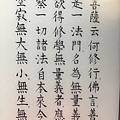 菩薩云何修行佛言善
是一法門名為無量義
欲得修學無量義者應
察一切諸法自本來今
空寂無大無小無生無